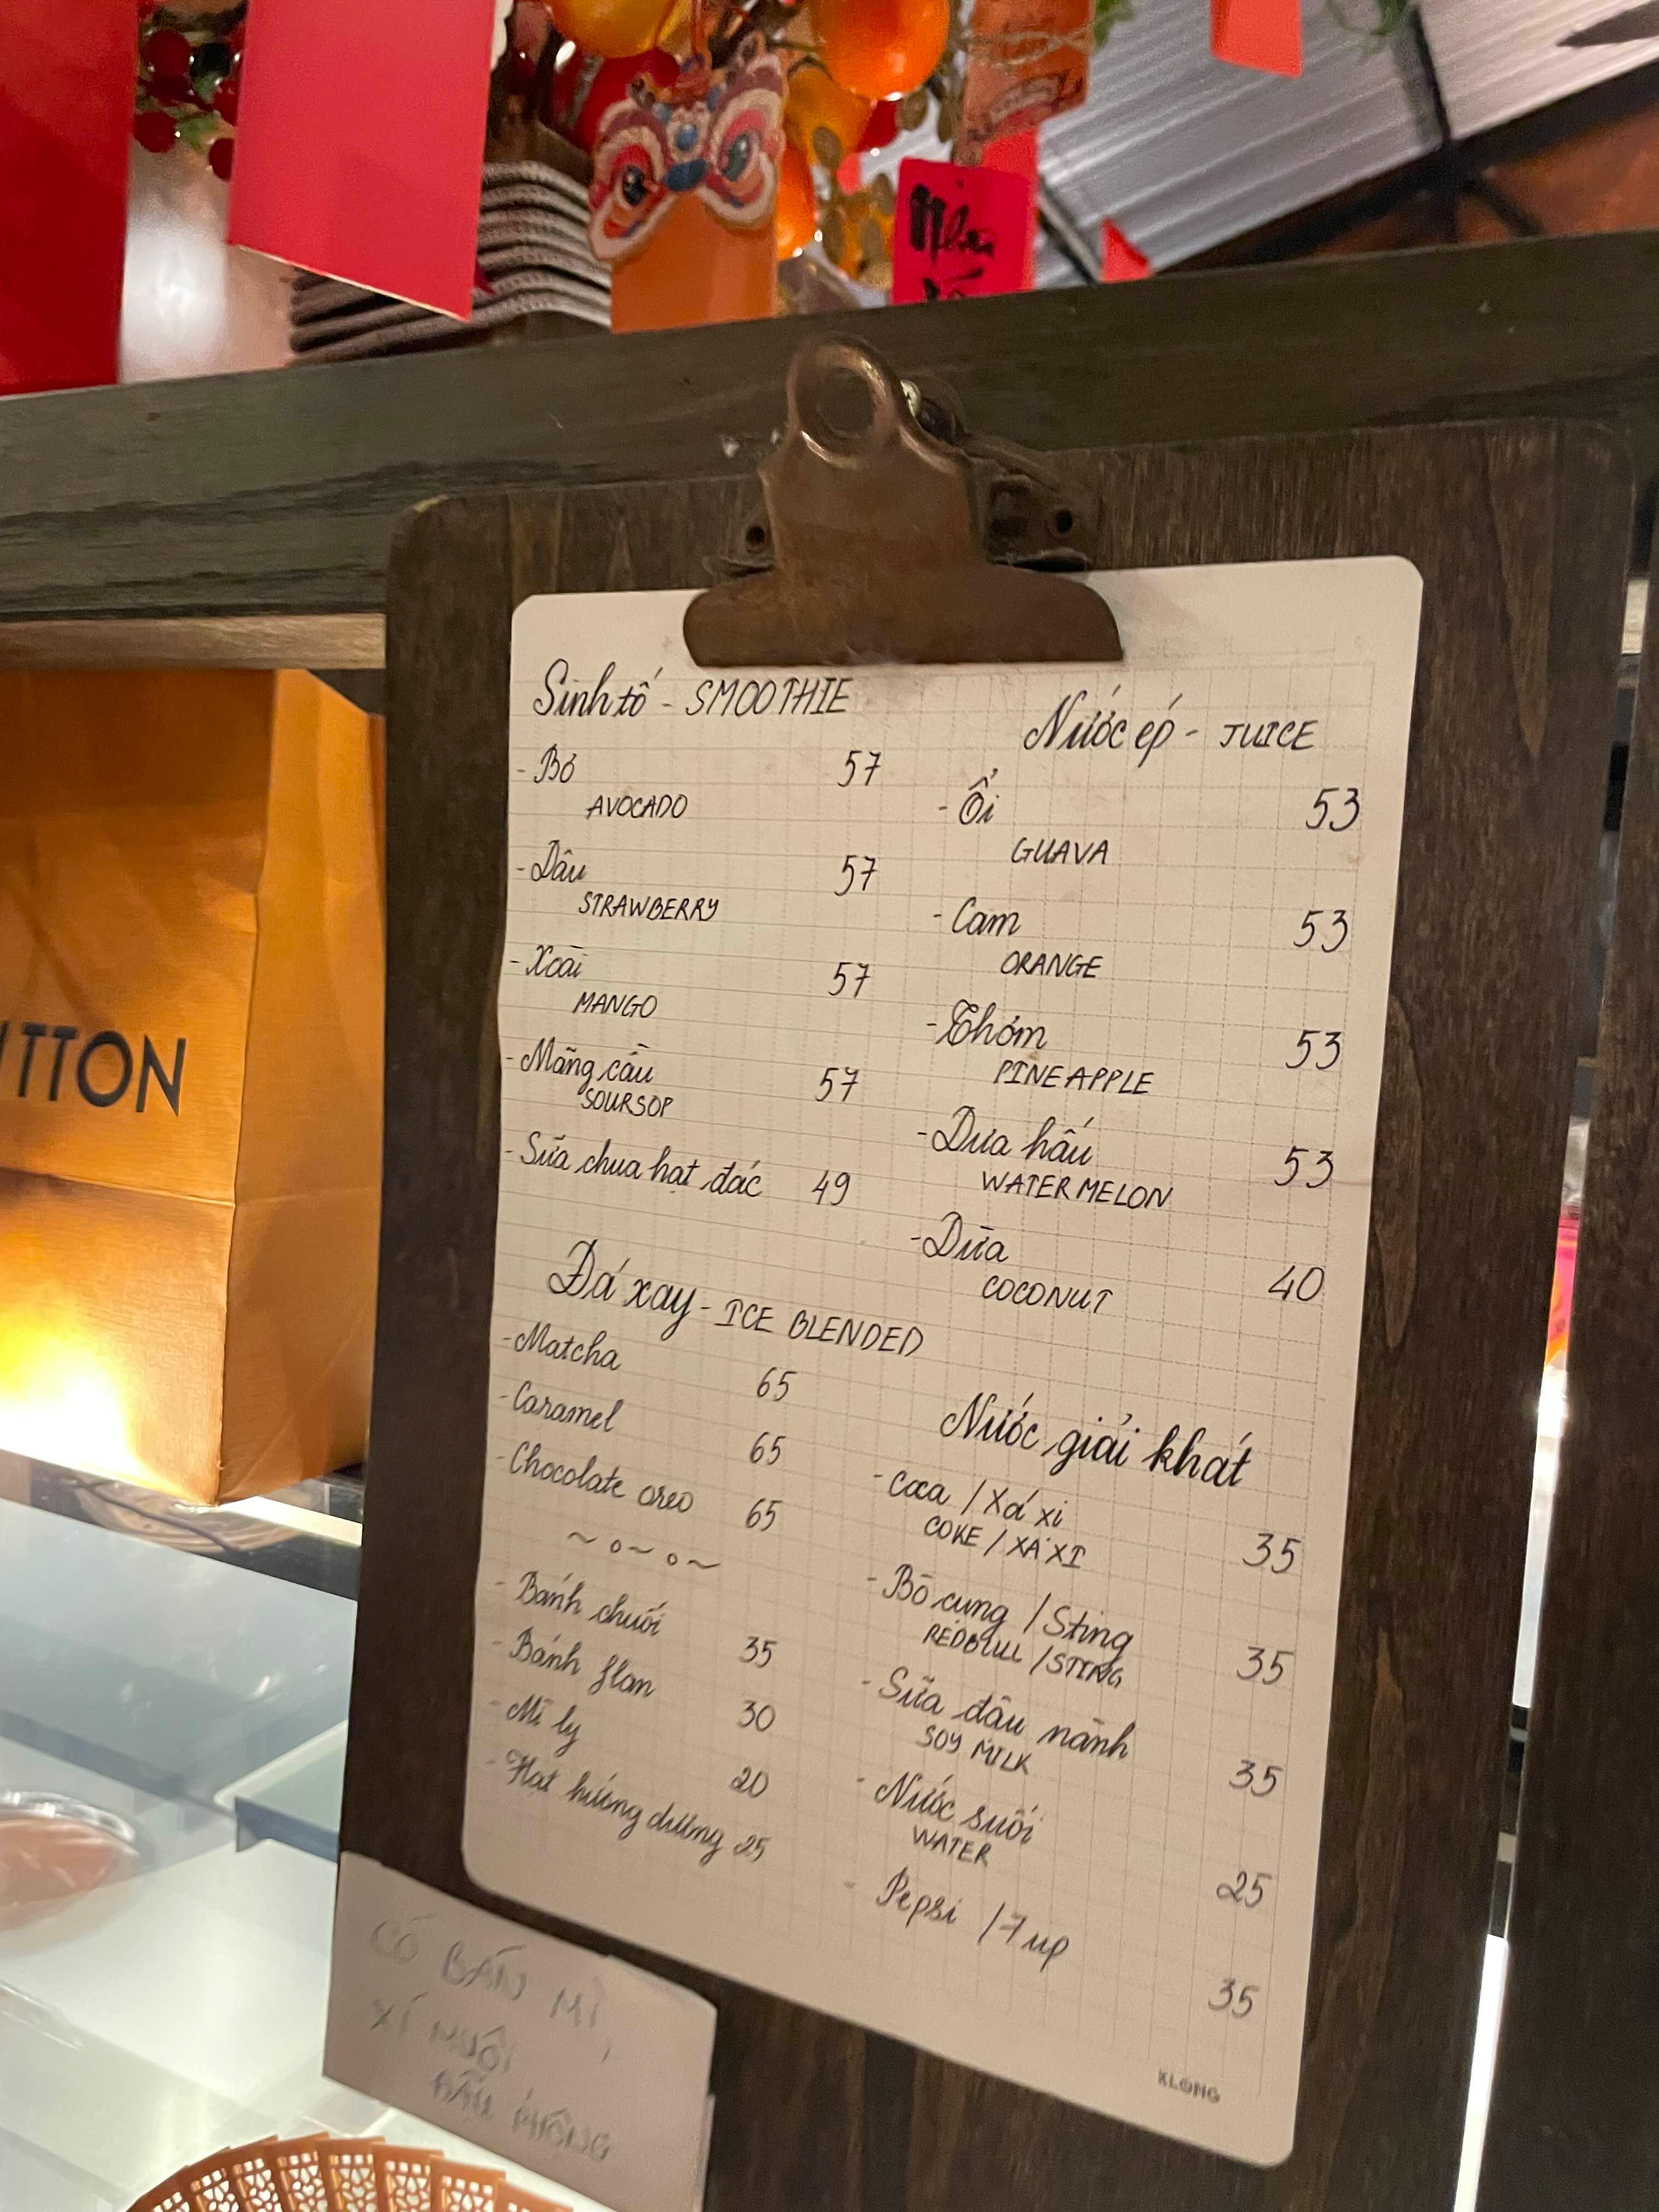 Nhu
ITTON
Sinh tố - SMOOTHIE
- Bơ 57
AVOCADO
- Dâu 57
STRAWBERRY
- Xoài 57
MANGO
- Mãng cầu 57
SOURSOP
- Sữa chua hạt đác 49
Đá xay - ICE BLENDED
- Matcha 65
- Caramel 65
- Chocolate oreo 65
~ o ~ o ~
- Bánh chuối 35
- Bánh flan 30
- Mì ly 20
- Hạt hướng dương 25
Nước ép - JUICE
- Ổi 53
GUAVA
- Cam 53
ORANGE
- Thơm 53
PINEAPPLE
- Dưa hấu 53
WATERMELON
- Dừa 40
COCONUT
Nước giải khát
- Coca / Xá xị 35
COKE / XÁ XỊ
- Bò cụng / Sting 35
REDBULL / STING
- Sữa đậu nành 35
SOY MILK
- Nước suối 25
WATER
- Pepsi / 7up 35
KLONG